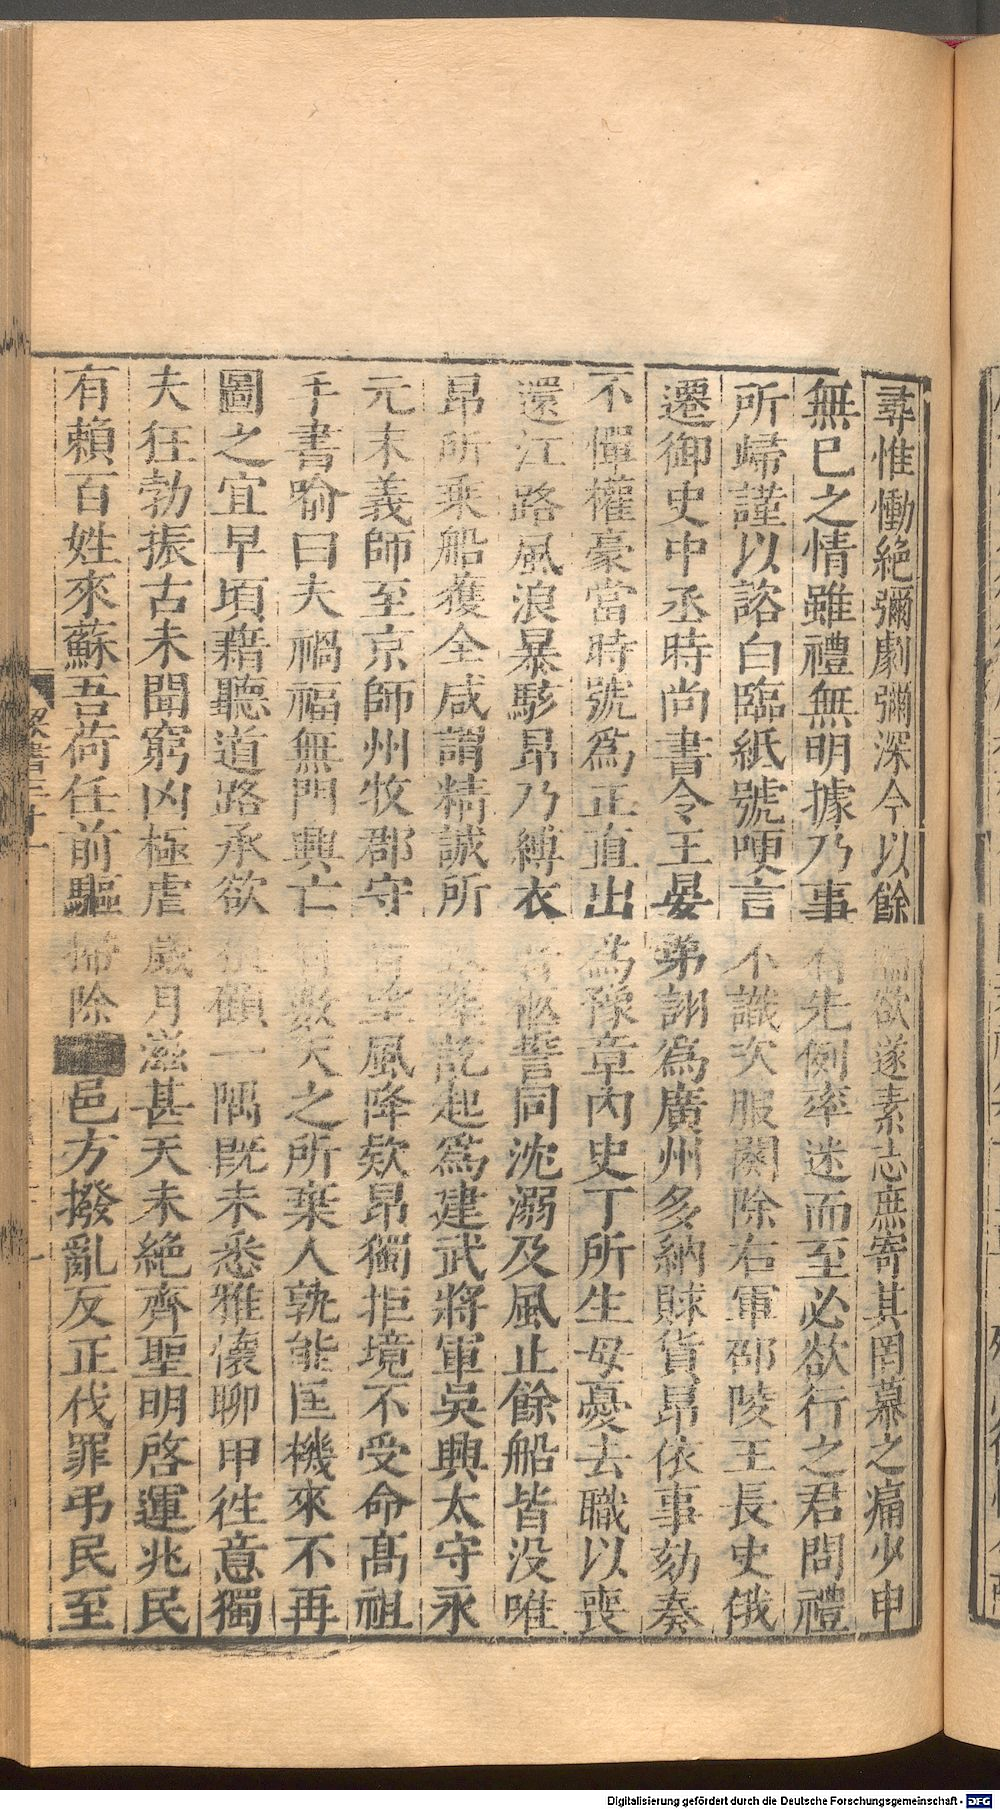 尋惟慟絶彌劇彌深今以餘喘欲遂素志庶寄其罔慕之痛少申
無已之情雖禮無明據乃事有先例率迷而至必欲行之君問禮
所歸謹以諮白臨紙號哽言不識次服闋除右軍邵陵王長史俄
遷御史中丞時尚書令王晏弟詡為廣州多納賕貨昂依事劾奏
不憚權豪當時號為正直出為豫章內史丁所生母憂去職以喪
還江路風浪暴駭昂乃縛衣著柩誓同沈溺及風止餘船皆没唯
昂所乗船獲全咸謂精誠所致葬訖起為建武將軍吳興太守永
元末義師至京師州牧郡守皆望風降欵昂獨拒境不受命髙祖
手書喻曰夫禍福無門興亡有數天之所棄人孰能匡機來不再
圖之宜早頃藉聽道路承欲狼顧一隅既未悉雅懷聊申徃意獨
夫狂勃振古未聞窮凶極虐歲月滋甚天未絶齊聖明啓運兆民
有賴百姓來蘇吾荷任前驅掃除邑方撥亂反正伐罪弔民至
Digitalisierung gefördert durch die Deutsche Forschungsgemeinschaft - DFG